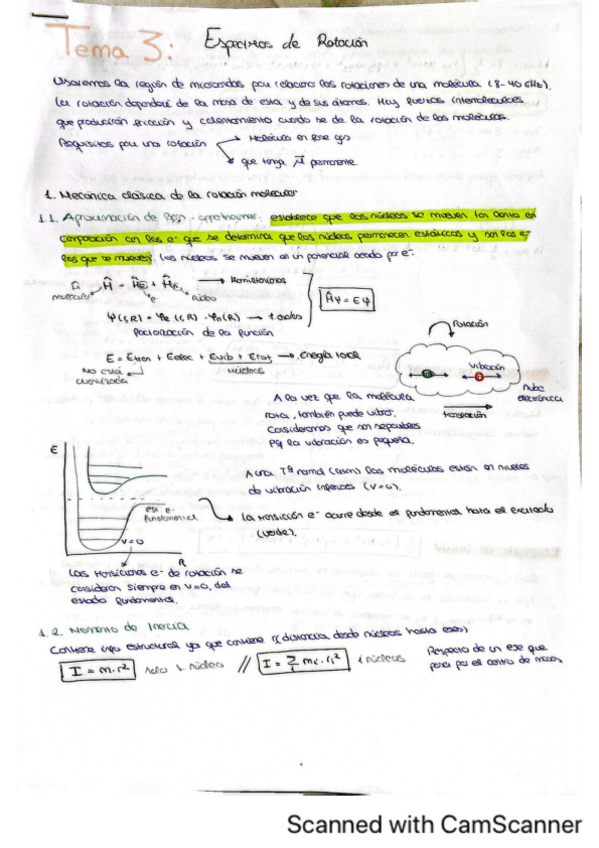 Tema 3: Espectros de Rotación
Usaremos la región de microondas para relacionar las rotaciones de una molécula (8-40 GHz).
La rotación dependerá de la masa de esta y de sus átomos. Hay fuerzas intermoleculares
que producirán fricción y calentamiento cuando se de la rotación de las moléculas.
Requisitos para una rotación → Molécula en fase gas
→ que tenga μ permanente
1. Mecánica clásica de la rotación molecular
1.1. Aproximación de Born-Oppenheimer: establece que los núcleos se mueven tan lento en
comparación con los e⁻ que se determina que los núcleos permanecen estáticos y son los e⁻
los que se mueven. Los núcleos se mueven en un potencial creado por e⁻.
Ĥ = Ĥe + ĤN → Hamiltonianos
molécula e⁻ núcleo
Ĥψ = Eψ
ψ(r,R) = ψe (r,R) · ψN(R) → 1 onda
Factorización de la función
E = Etran + Eelec + Evib + Erot → Energía total
no está cuantizada
núcleos
Rotación
vibración
Nube electrónica
translación
A la vez que la molécula
rota, también puede vibrar.
Consideramos que son separables
pq la vibración es pequeña.
E
A una Tª normal (atm) las moléculas están en niveles
de vibración inferiores (v=0).
est. e⁻ fundamental
la transición e⁻ ocurre desde el fundamental hasta el excitado
(verde).
v=0
R
Las transiciones e⁻ de rotación se
consideran siempre en v=0, del
estado fundamental.
1.2. Momento de Inercia
Contiene info estructural ya que contiene r (distancia desde núcleos hasta ejes)
I = m·r² solo 1 núcleo // I = Σ mi·ri² i núcleos
Respecto de un eje que
pasa por el centro de masas
Scanned with CamScanner